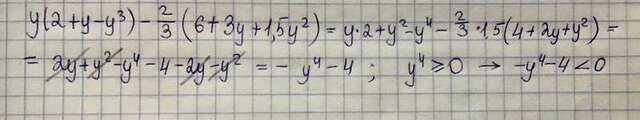 y(2+y-y³)-2/3(6+3y+1,5y²)=y·2+y²-y⁴-2/3·1,5(4+2y+y²)=
=2y+y²-y⁴-4-2y-y²=-y⁴-4; y⁴≥0 → -y⁴-4<0